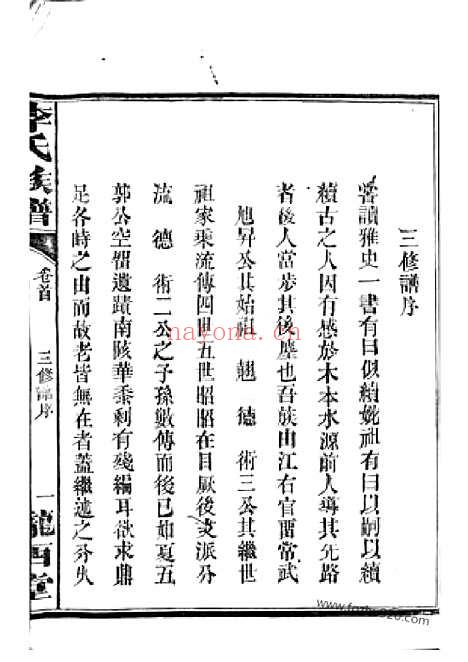 三修譜序
嘗讀雅史一書有曰似續妣祖有曰以嗣以續
續古之人因有感於木本水源前人導其先路
者後人當步其後塵也吾族由江右官酉當武
旭昇公其始祖翹德術三公其繼世
祖家乘流傳四世五世昭昭在目厥後支派分
流德術二公之子孫數傳而後已如夏五
郭公空留遺蹟南陔華黍剩有殘編耳欲求鼎
足各時之由而故老皆無在者蓋繼述之分失
李氏族譜
卷首
三修譜序
一
隴西堂
nayona.cn